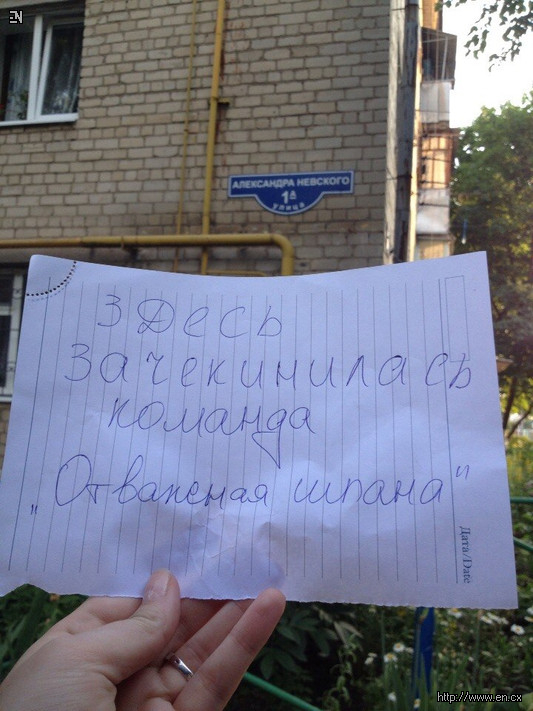 EN
АЛЕКСАНДРА НЕВСКОГО
1А
улица
Здесь
зачекинилась
команда
„Отважная шпана"
Дата/Date
http://www.en.cx